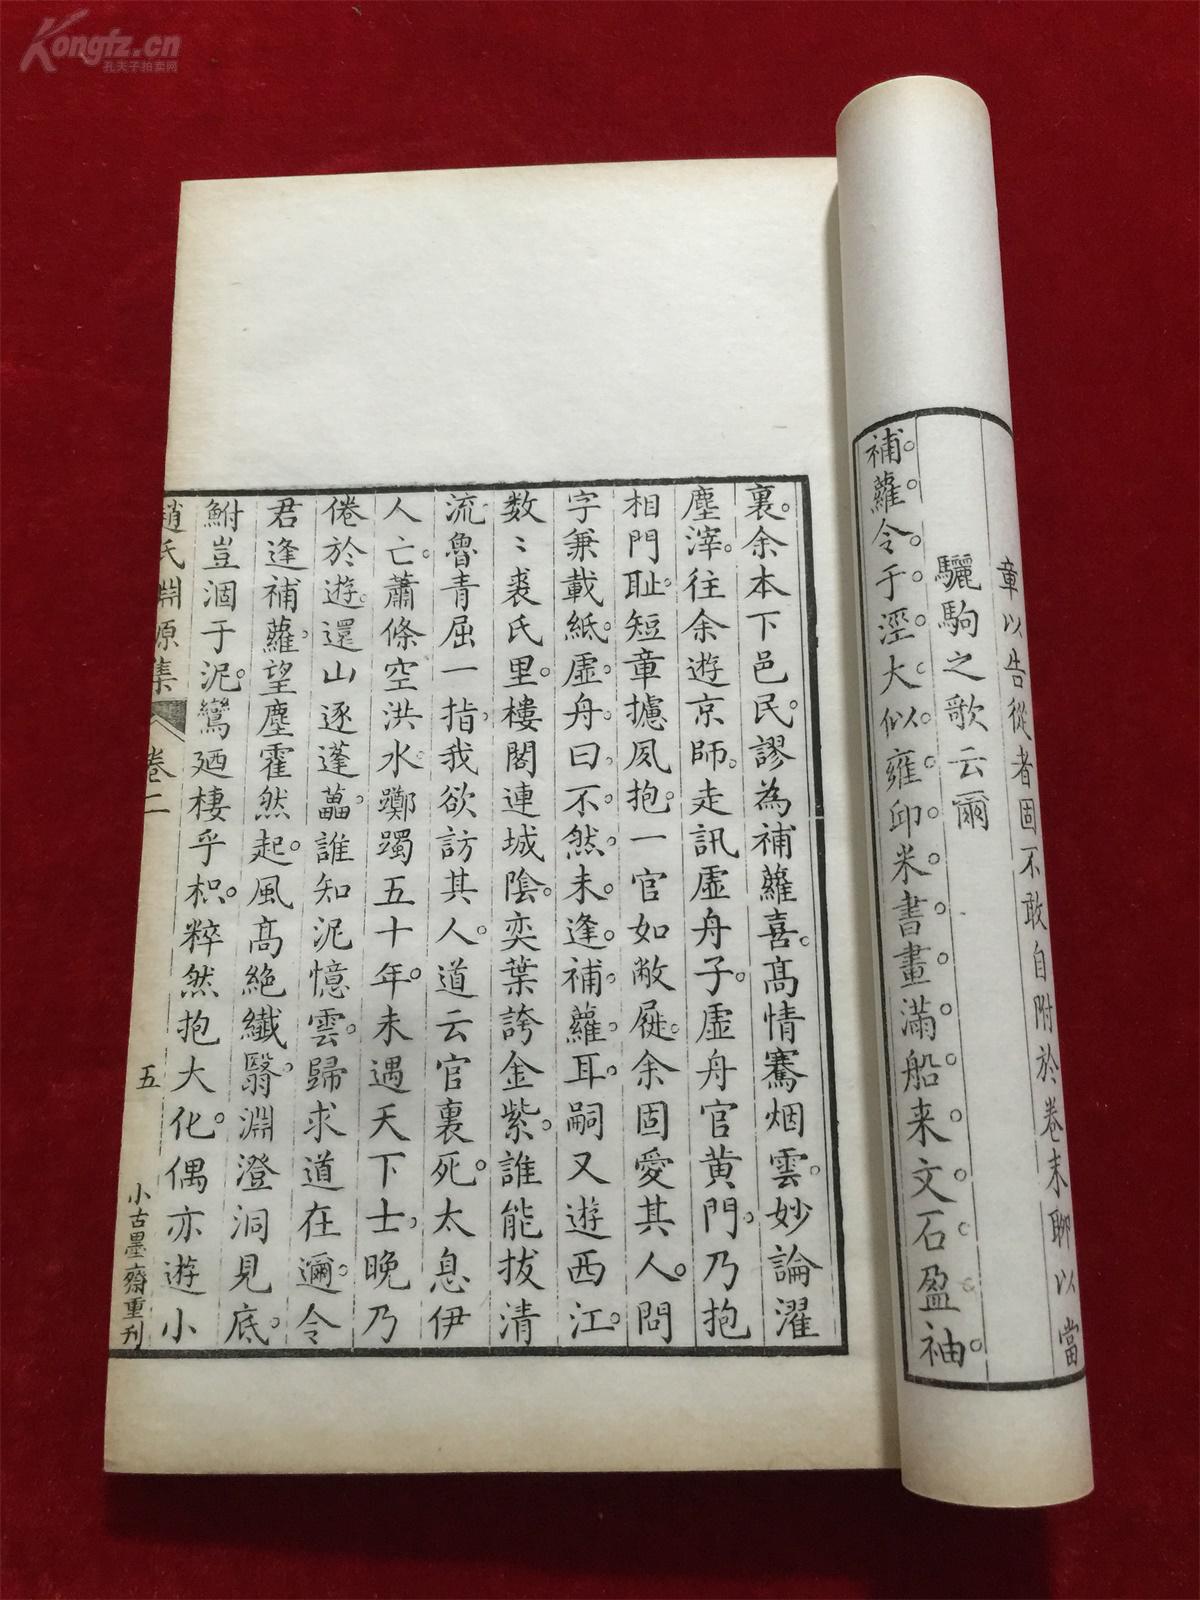 Kongfz.cn
孔夫子拍卖网
章以告從者固不敢自附於卷末聊以當
驪駒之歌云爾
補蘿令于涇大似雍邱米書畫滿船来文石盈袖
裏余本下邑民謬為補蘿喜高情騫烟雲妙論濯
塵滓往余遊京師走訊虛舟子虛舟官黄門乃抱
相門耻短章攄夙抱一官如敝屣余固愛其人問
字兼載紙虛舟曰不然未逢補蘿耳嗣又遊西江
数〻裘氏里樓閣連城陰奕葉誇金紫誰能拔清
流魯青屈一指我欲訪其人道云官裏死太息伊
人亡蕭條空洪水躑躅五十年未遇天下士晚乃
倦於遊還山逐蓬藟誰知泥憶雲歸求道在邇令
君逢補蘿望塵霍然起風高絶纖翳淵澄洞見底
鮒豈涸于泥鸞廼棲乎枳粹然抱大化偶亦遊小
趙氏淵源集 卷二 五 小古墨齋重刊